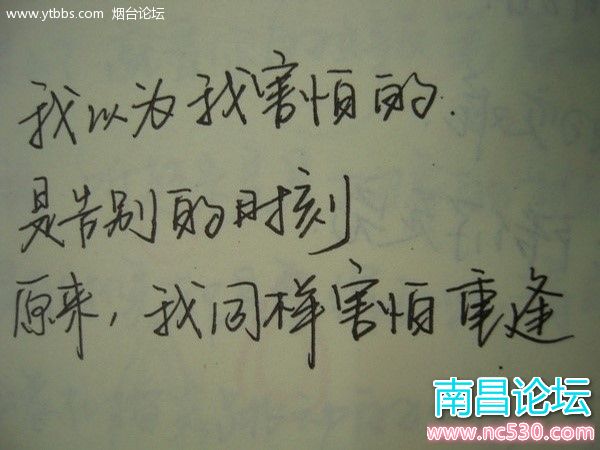 www.ytbbs.com 烟台论坛
我以为我害怕的.
是告别的时刻
原来，我同样害怕重逢
南昌论坛
www.nc530.com